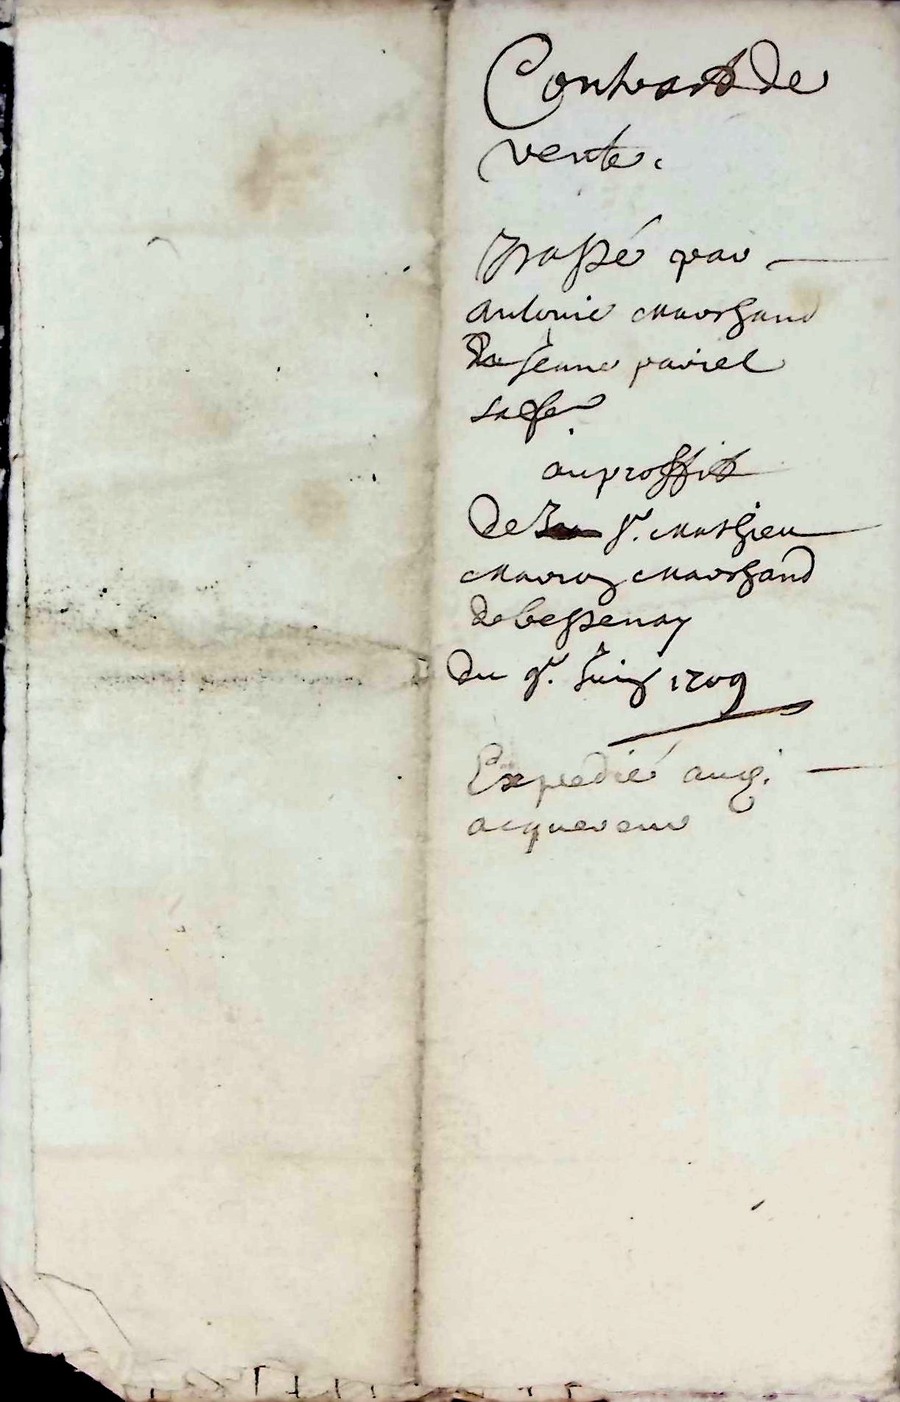 Contract de
vente.
Passé par
Antoinie Marchand
Jeanne pariel
sa fe
au proffit
De Sr. Mathieu
Marchand
de bessenay
Du 9e. Juin 1709
Expedié aud.
acquereur